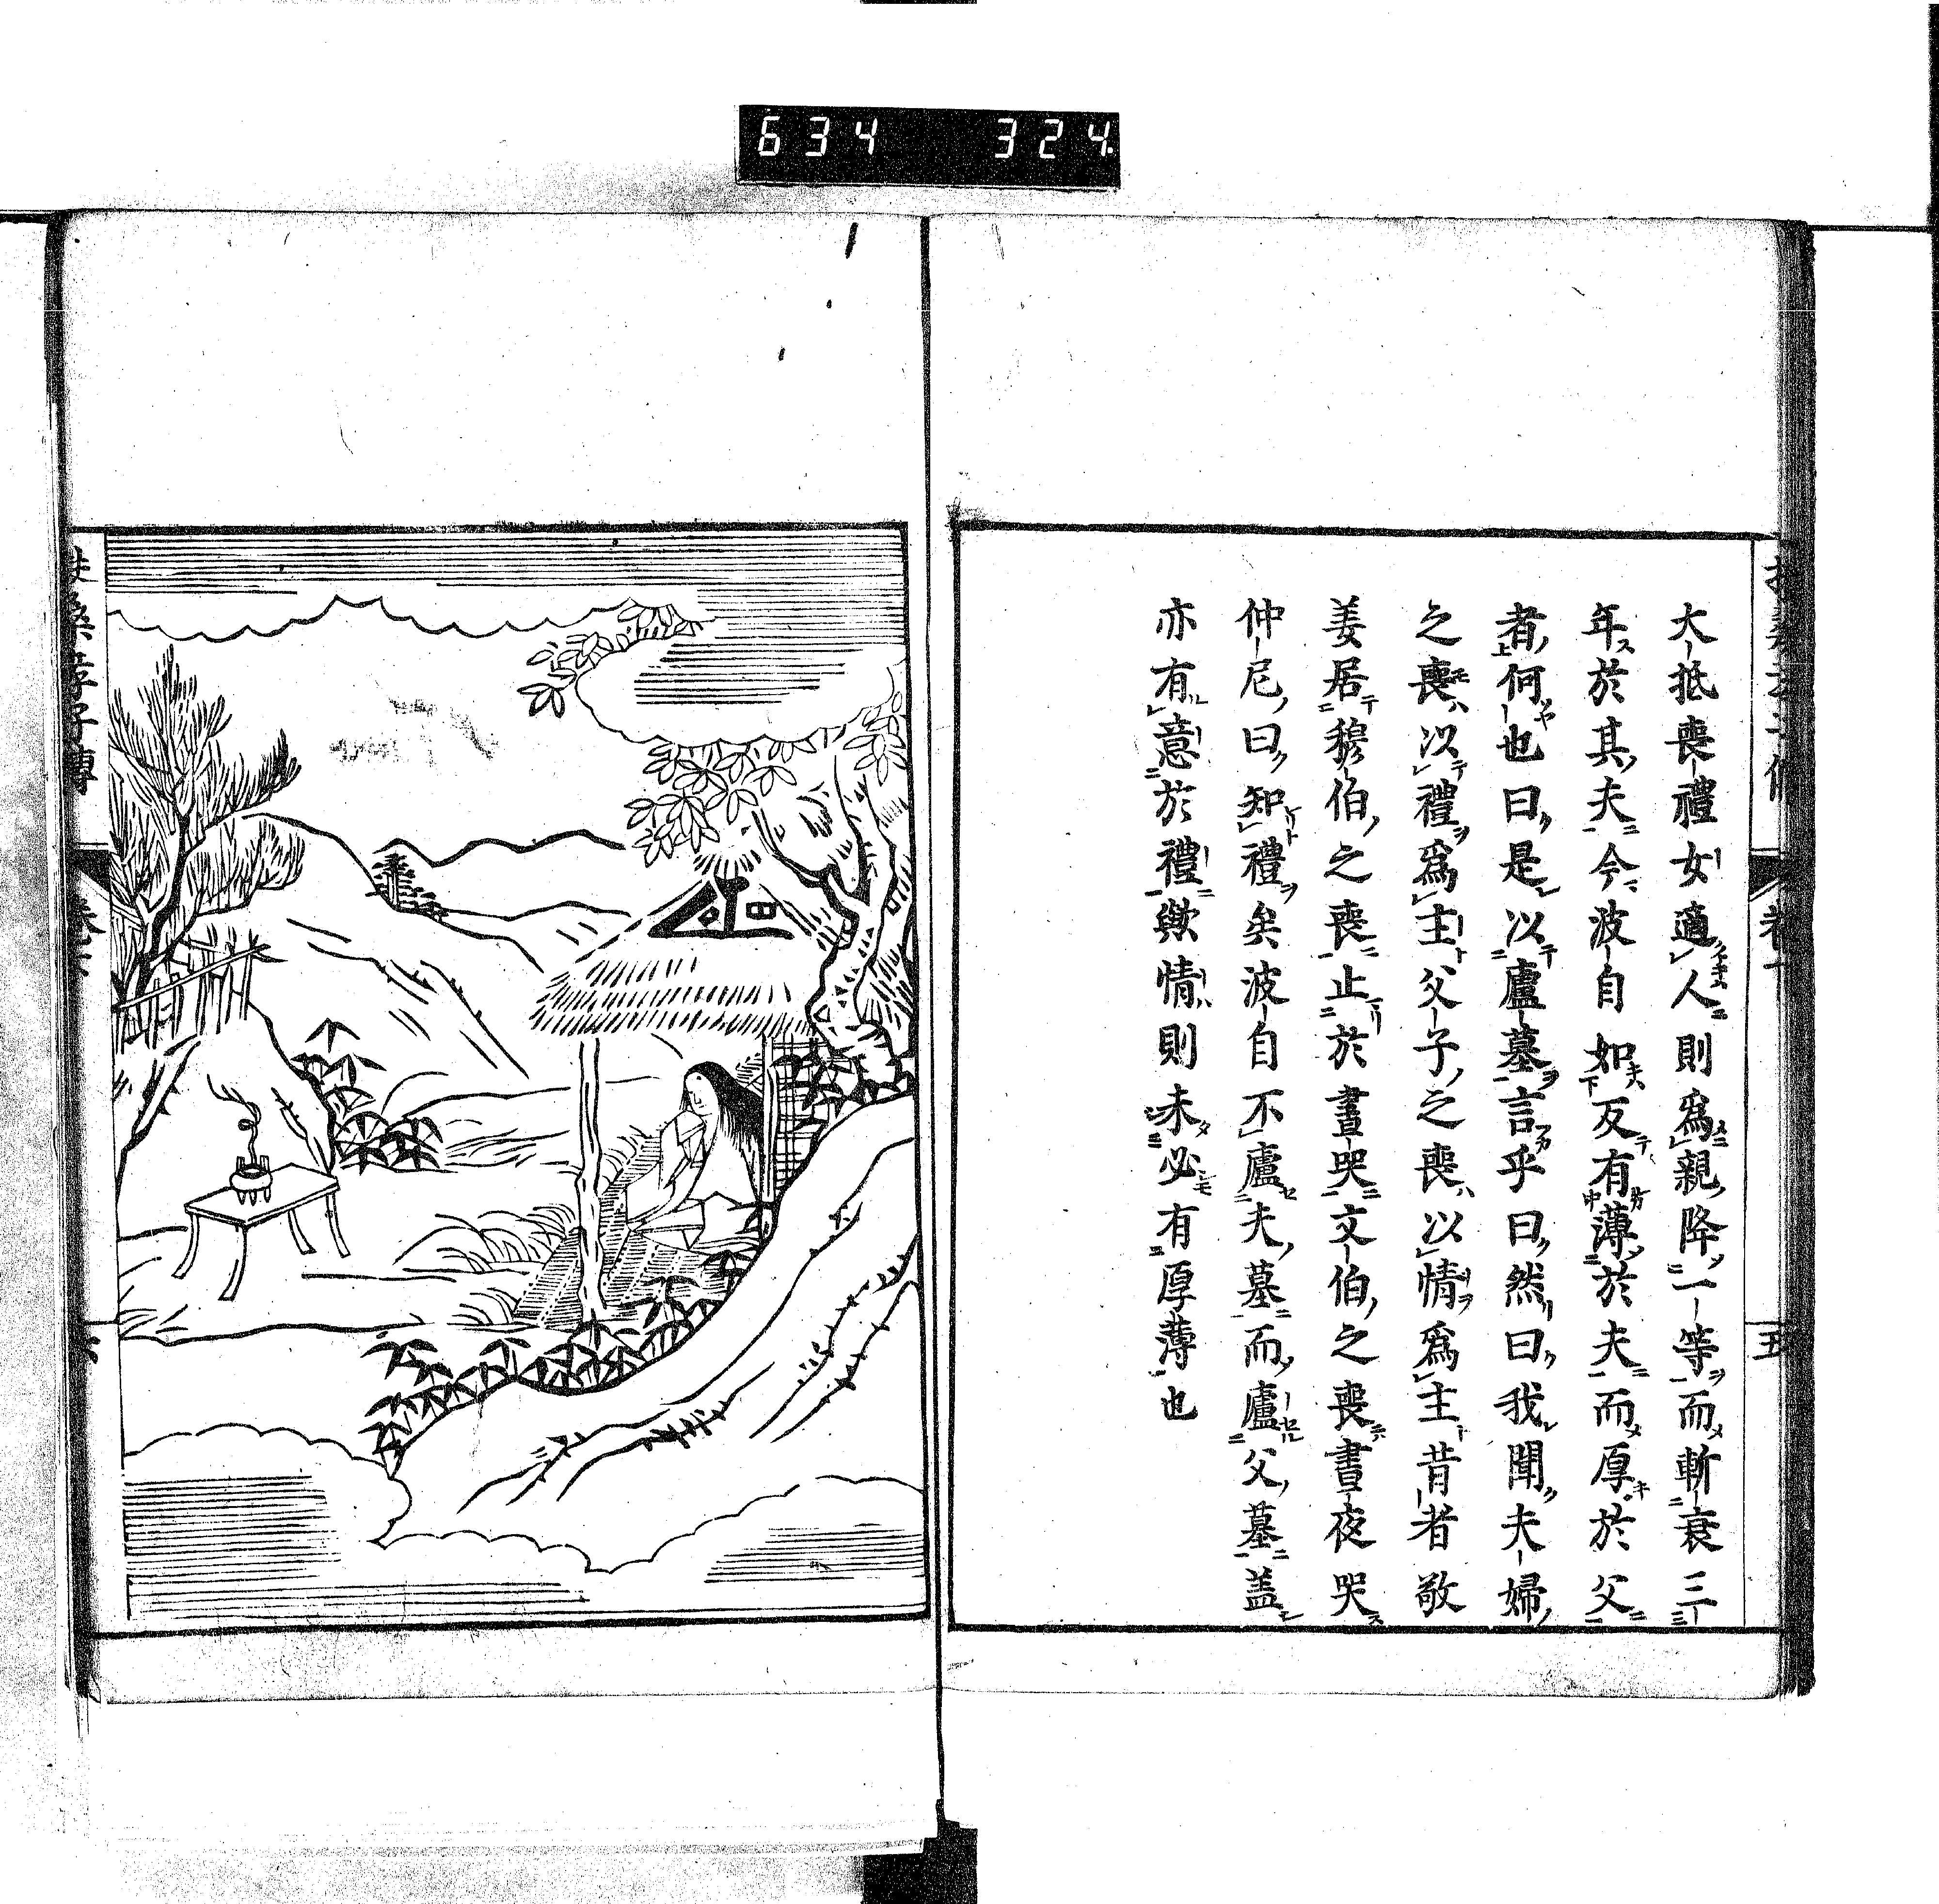 634 324
大抵喪禮女適人則爲親降一等而斬衰三
年於其夫今波自如反有薄於夫而厚於父
者何也曰是以廬墓言乎曰然曰我聞夫婦
之喪以禮爲主父子之喪以情爲主昔者敬
姜居穆伯之喪止於晝哭文伯之喪晝夜哭
仲尼曰知禮矣波自不廬夫墓而廬父墓盖
亦有意於禮歟情則未必有厚薄也
五
扶桑孝子傳